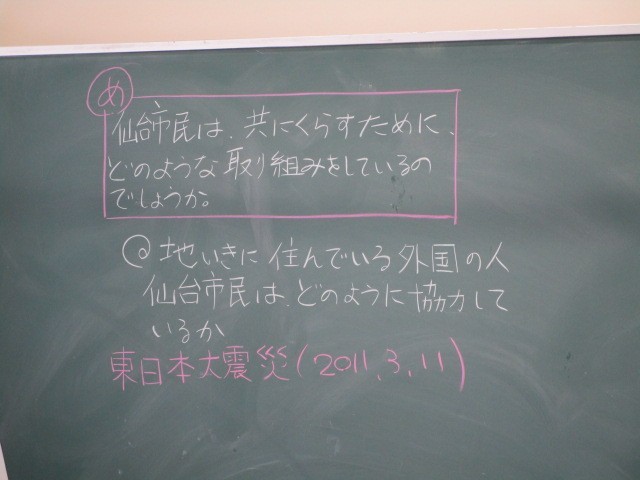 め
仙台市民は、共にくらすために、
どのような取り組みをしているの
でしょうか。
◎地いきに住んでいる外国の人
仙台市民は、どのように協力して
いるか
東日本大震災(2011.3.11)